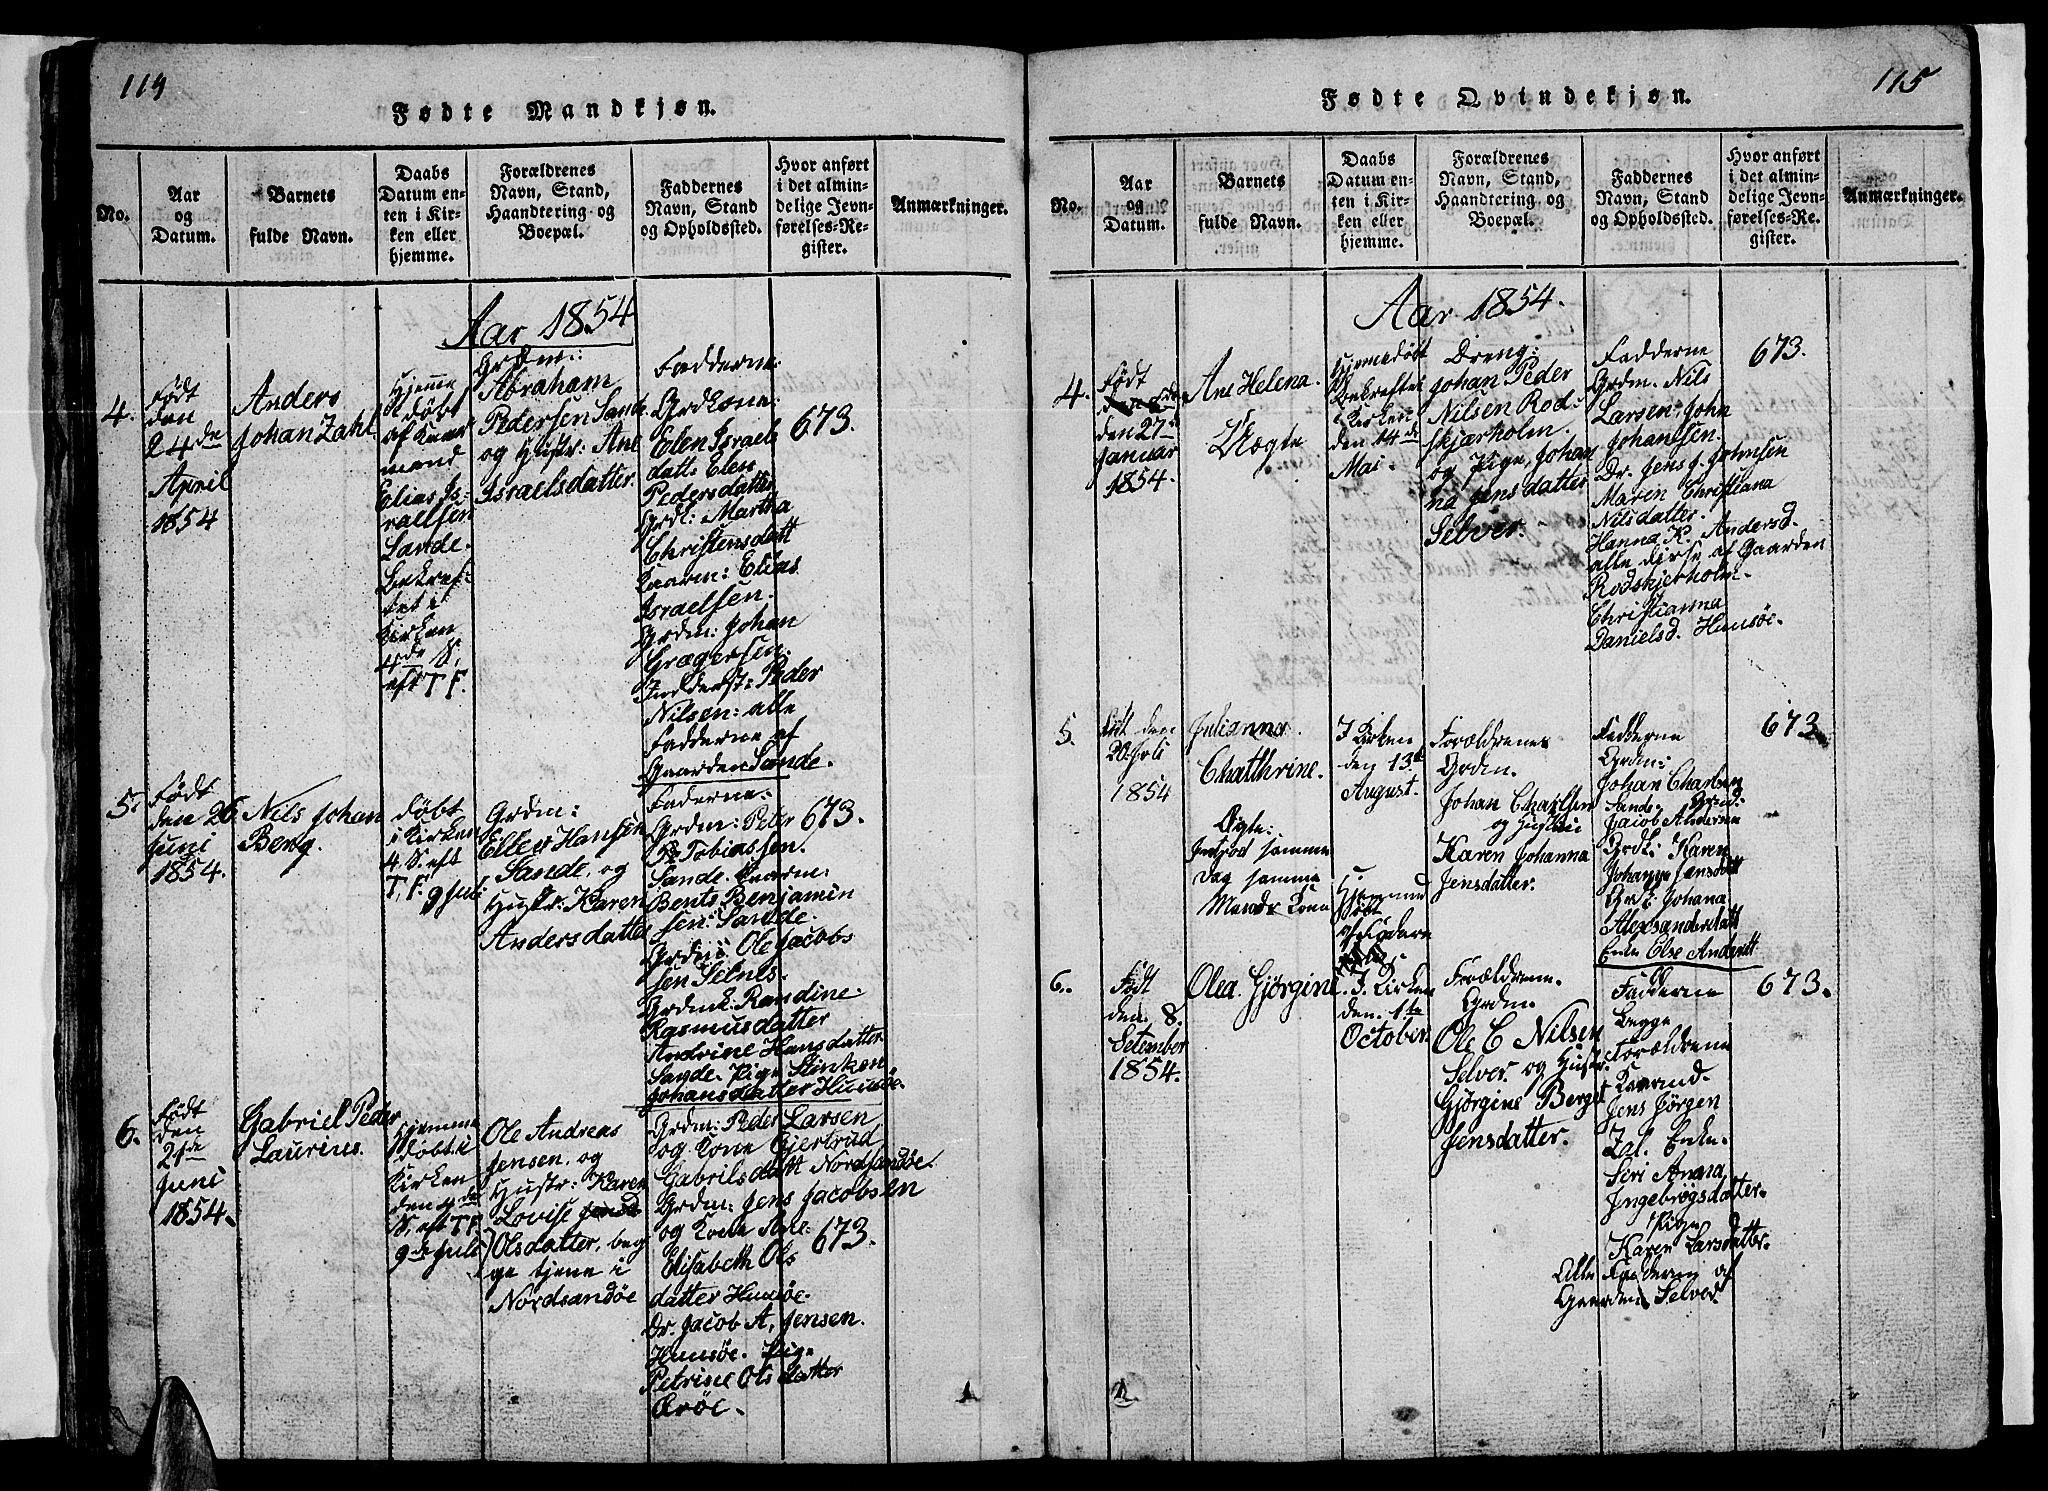 114
Fødte Mandkjøn.
No.
Aar
og
Datum.
Barnets
fulde Navn.
Daabs
Datum en-
ten i Kir-
ken eller
hjemme.
Forældrenes
Navn, Stand,
Haandtering og
Boepæl.
Faddernes
Navn, Stand
og Opholdssted.
Hvor anført
i det almin-
delige Jevn-
førelses-Re-
gister.
Anmærkninger.
Aar 1854
4.
Født
den
24de
April
1854
Anders
Johan Zahl
Hjemme
døbt
af Kaar
mand
Elias Is-
raelsen
Sande.
Bekræf-
tet i
Kirken
4de S.
eft T F.
Grdm:
Abraham
Pedersen Sande
og Hustr: Ane
Israelsdatter
Fadderne:
Grdkone:
Elen Israels
datt: Elen
Pedersdatter
Grdk: Martha
Christensdatt
Kaarm: Elias
Israelsen.
Grdm: Johan
Grægersen.
Inderst: Peder
Nilsen: alle
Fadderne af
Gaarden Sande.
673.
5.
Født
den 26
Juni
1854.
Nils Johan
Berg.
døbt
i Kirken
4. S. eft
T. F. 9 Juli
Grdm:
Eller Hansen
Sande, og
Hustr: Karen
Andersdatter
Faderne:
Grdm: Peter
P Tobiassen.
Sande. Kaarm:
Bents Benjamin
sen: Sande.
Grdm: Ole Jacobs
sen Selnes.
Grdmk: Randine
Rasmusdatter
Andrine Hansdatter
Sande. Pige Stinken
Johansdatter Huusøe.
673.
6.
Født
den
21de
Juni
1854.
Gabriel Peder
Laurius.
Hjemme
døbt i
Kirken
den 4de
S. eft T F.
9de Juli
Ole Andreas
Jensen. og
Hustr: Karen
Lovise
Olsdatter, beg
ge tjene i
Nordsandøe
Grdm: Peder Larsen
og Kone Gjertrud
Gabrilsdatt Nordsandøe.
Grdm: Jens Jacobsen
og Kone Ane
Elisabeth Ols
datter Huusøe.
Dr. Jacob A, Jensen.
Huusøe. Pige
Petrine Olsdatter
Ærøe.
673.
115
Fødte Qvindekjøn.
No.
Aar
og
Datum.
Barnets
fulde Navn.
Daabs
Datum en-
ten i Kir-
ken eller
hjemme.
Forældrenes
Navn, Stand,
Haandtering og
Boepæl.
Faddernes
Navn, Stand
og Opholdssted.
Hvor anført
i det almin-
delige Jevn-
førelses-Re-
gister.
Anmærkninger.
Aar 1854.
4.
Født
den 27de
Januar
1854.
Ane Helena.
Uægte
Hjemedøbt
Bekræftet
i Kirken
den 14de
Mai.
Dreng:
Johan Peder
Nilsen Rod-
skjærholm.
og Pige, Johan
na Jensdatter
Selver.
Fadderne
Grdm. Nils
Larsen. John
Johansen.
Dr. Jens J. Johnsen
Maren Christiana
Nilsdatter.
Hanna K. Andersd.
alle disse af Gaarden
Rodskjerholm.
Christianna
Danielsd. Huusøe.
673.
5.
Født den
20 Juli
1854
Julianna
Chatthrine.
Ægte:
samme
Dag samme
Mands Kone
I Kirken
den 13de
August.
Hjemme
døbt
af Fadere
Forældrene
Grdm.
Johan Charlsen
og Hustrue
Karen Johanna
Jensdatter.
Fadderne
Grdm:
Johan Charlsen
Sande. Grdm:
Jacob Andersen
Grdk: Karen
Johanna Jensdatt
Grdk. Johana
Alexsandersdatt
Enke Olse Andersdt
673.
6.
Født
den 8.
Setember
1854.
Olea Gjørgine
I Kirken
den 1te
October
Forældrene.
Grdm.
Ole C Nilsen
Selver. og Hustr.
Gjørgine Berget
Jensdatter.
Fadderne
begge
Forældrene
Kaarmd.
Jens Jørgen
Zal. Enke.
Siri Anna
Ingebrøgsdatter.
Pige
Karen Larsdatter.
Alle Fadderne af
Gaarden Selver.
673.